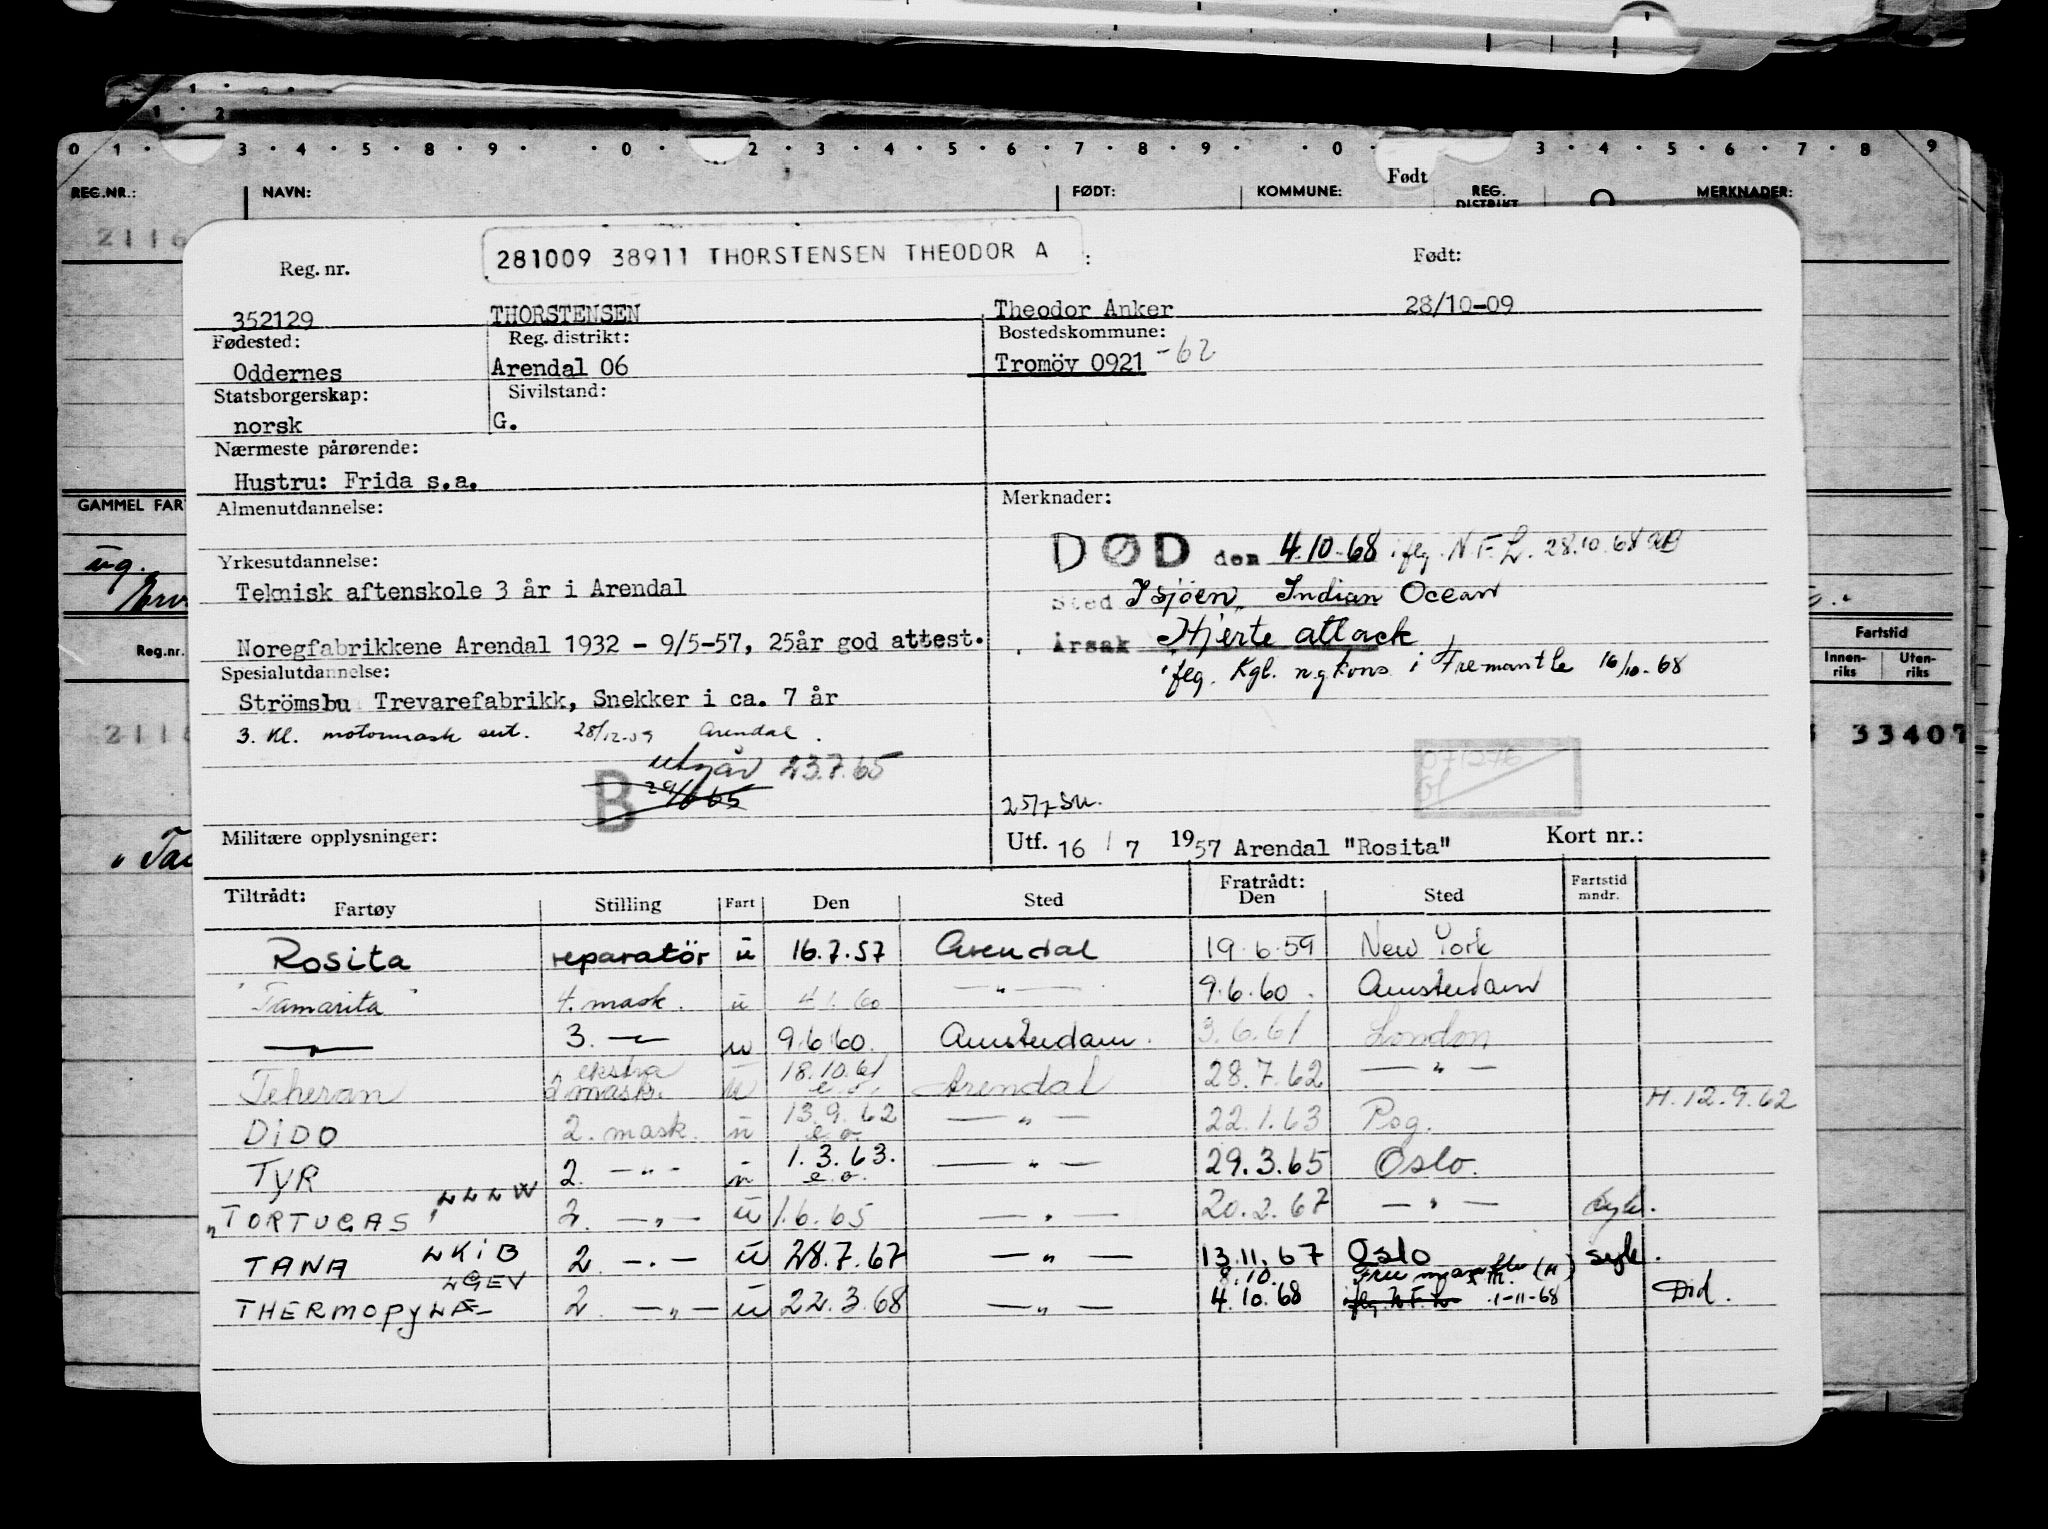 1 2
0 1 · 3 · 4 · 5 · 8 · 9 · · 0 · 2 · 3 · 4 · 6 · 7 · 8 · 9 · · 0 · 3 · 4 · 5 · 6 · 7 · 8 · 9
REG.NR.: NAVN: FØDT: KOMMUNE: Født REG. DISTRIKT MERKNADER:
2116
281009 38911 THORSTENSEN THEODOR A
Reg. nr. : Født:
352129 THORSTENSEN Theodor Anker 28/10-09
Fødested: Reg. distrikt: Bostedskommune:
Oddernes Arendal 06 Tromöy 0921 -62
Statsborgerskap: Sivilstand:
norsk G.
Nærmeste pårørende:
Hustru: Frida s.a.
GAMMEL FAR
Almenutdannelse: Merknader:
DØD den 4.10.68 iflg. N.F.L. 28.10.68
ug.
Yrkesutdannelse:
Teknisk aftenskole 3 år i Arendal
Sted I sjöen, Indian Ocean
Årsak Hjerte attack
Noregfabrikkene Arendal 1932 - 9/5-57, 25år god attest.
Reg.nr. Fartstid
Innen-riks Uten-riks
iflg. Kgl. n.g.kons. i Fremantle 16/10-68
Spesialutdannelse:
Strömsbu Trevarefabrikk, Snekker i ca. 7 år
3. kl. motormask sert. 28/12-59 Arendal.
33407
B utgår 23.7.65
071276
25/7 SM.
Militære opplysninger: Utf. 16 / 7 1957 Arendal "Rosita" Kort nr.:
Tiltrådt: Fratrådt:
Fartøy Stilling Fart Den Sted Den Sted Fartstid mndr.
Rosita reparatör u 16.7.57 Arendal 19.6.59 New York
"Tamarita" 4. mask. u 4.1.60 — " — 9.6.60. Amsterdam
— " — 3. — u 9.6.60. Amsterdam. 3.6.61 London
Teheran ekstra 2 mask. u 18.10.61 e.o. Arendal 28.7.62 — " —
H. 12.9.62
DIDO 2. mask. u 13.9.62 e.o. — " — 22.1.63 Pog.
TYR 2. — " — u 1.3.63. e.o. — " — 29.3.65 Oslo.
"TORTUGAS" LLLW 2. — " — u 1.6.65 — " — 20.2.67 — " — syk.
TANA LKIB 2. — " — u 28.7.67 — " — 13.11.67 Oslo syk.
THERMOPYLÆ LGEV 2. — " — u 22.3.68 — " — 8.10. 4.10.68 Freemantle (H) iflg. N.F.L. 1-11-68 Död.